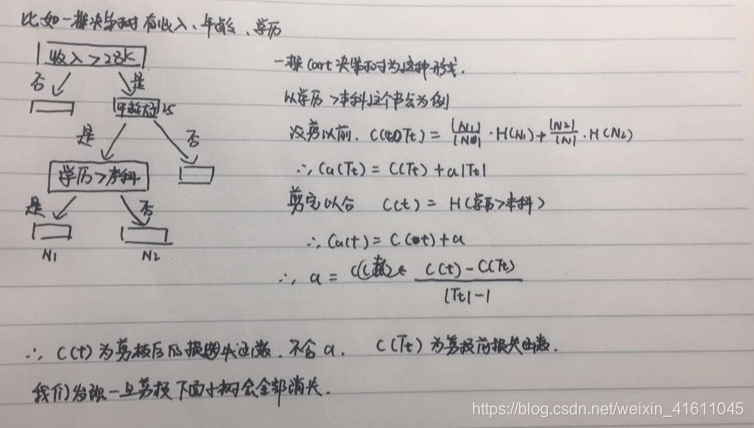 比如一棵决策树有收入、年龄、学历
收入>23K
否
是
年龄大于25
是
否
学历>本科
是
否
N1
N2
一棵Cart决策树为这种形式.
以学历>本科这个节点为例
没剪以前. C(Tt) = |N1|/|N| · H(N1) + |N2|/|N| · H(N2)
∴ Ca(Tt) = C(Tt) + a|Tt|
剪完以后 C(t) = H(学历>本科)
∴ Ca(t) = C(t) + a
∴ a = C(t) - C(Tt) / |Tt| - 1
∴ C(t)为剪枝后的损失函数. 不含a. C(Tt)为剪枝前损失函数.
我们发现一旦剪枝下面小树会全部消失.
https://blog.csdn.net/weixin_41611045